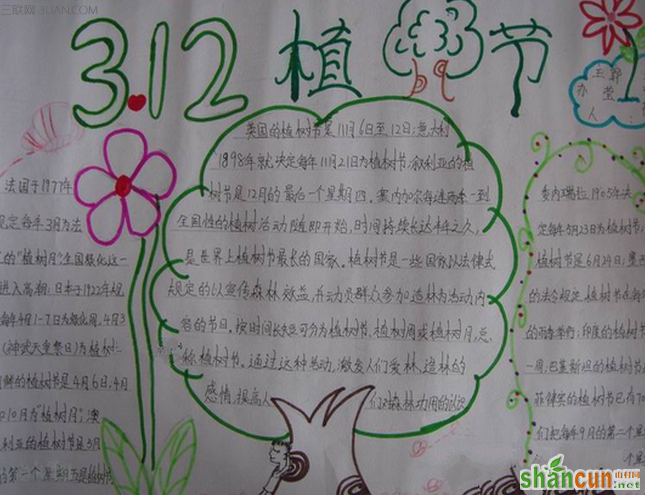 三联网 3LIAN.COM
3.12 植树节
王郭
办莹
人:
英国的植树节是11月6日至12日;意大利
1898年就决定每年11月21日为植树节;叙利亚的植
树节是12月的最后一个星期四。塞内加尔每逢雨季一到
全国性的植树活动随即开始,时间持续长达半年之久,
是世界上植树节最长的国家。植树节是一些国家以法律
规定的以宣传森林效益,并动员群众参加造林为活动内
容的节日。按时间长短可分为植树节,植树周或植树月,总
称植树节。通过这种活动,激发人们爱林、造林的
感情,提高人们对森林功用的认识
法国于1977年
规定每年3月为法
的"植树月"全国绿化这一
进入高潮;日本于1922年规
每年4月1-7日为绿化周,4月3
(神武天皇祭日)为植树
鲜的植树节是4月6日,4月
10月为"植树月";澳
利亚的植树节是5月
第一个星期五是植树节
委内瑞拉1905年决
定每年5月23日为植树节;
植树节是6月24日;墨西
的法令规定,植树节在每年
的雨季举行;印度的植树节
一周;巴基斯坦的植树节
菲律宾的植树节已有70
们把每年9月的第二个星
个星
shancun
山村网
.net